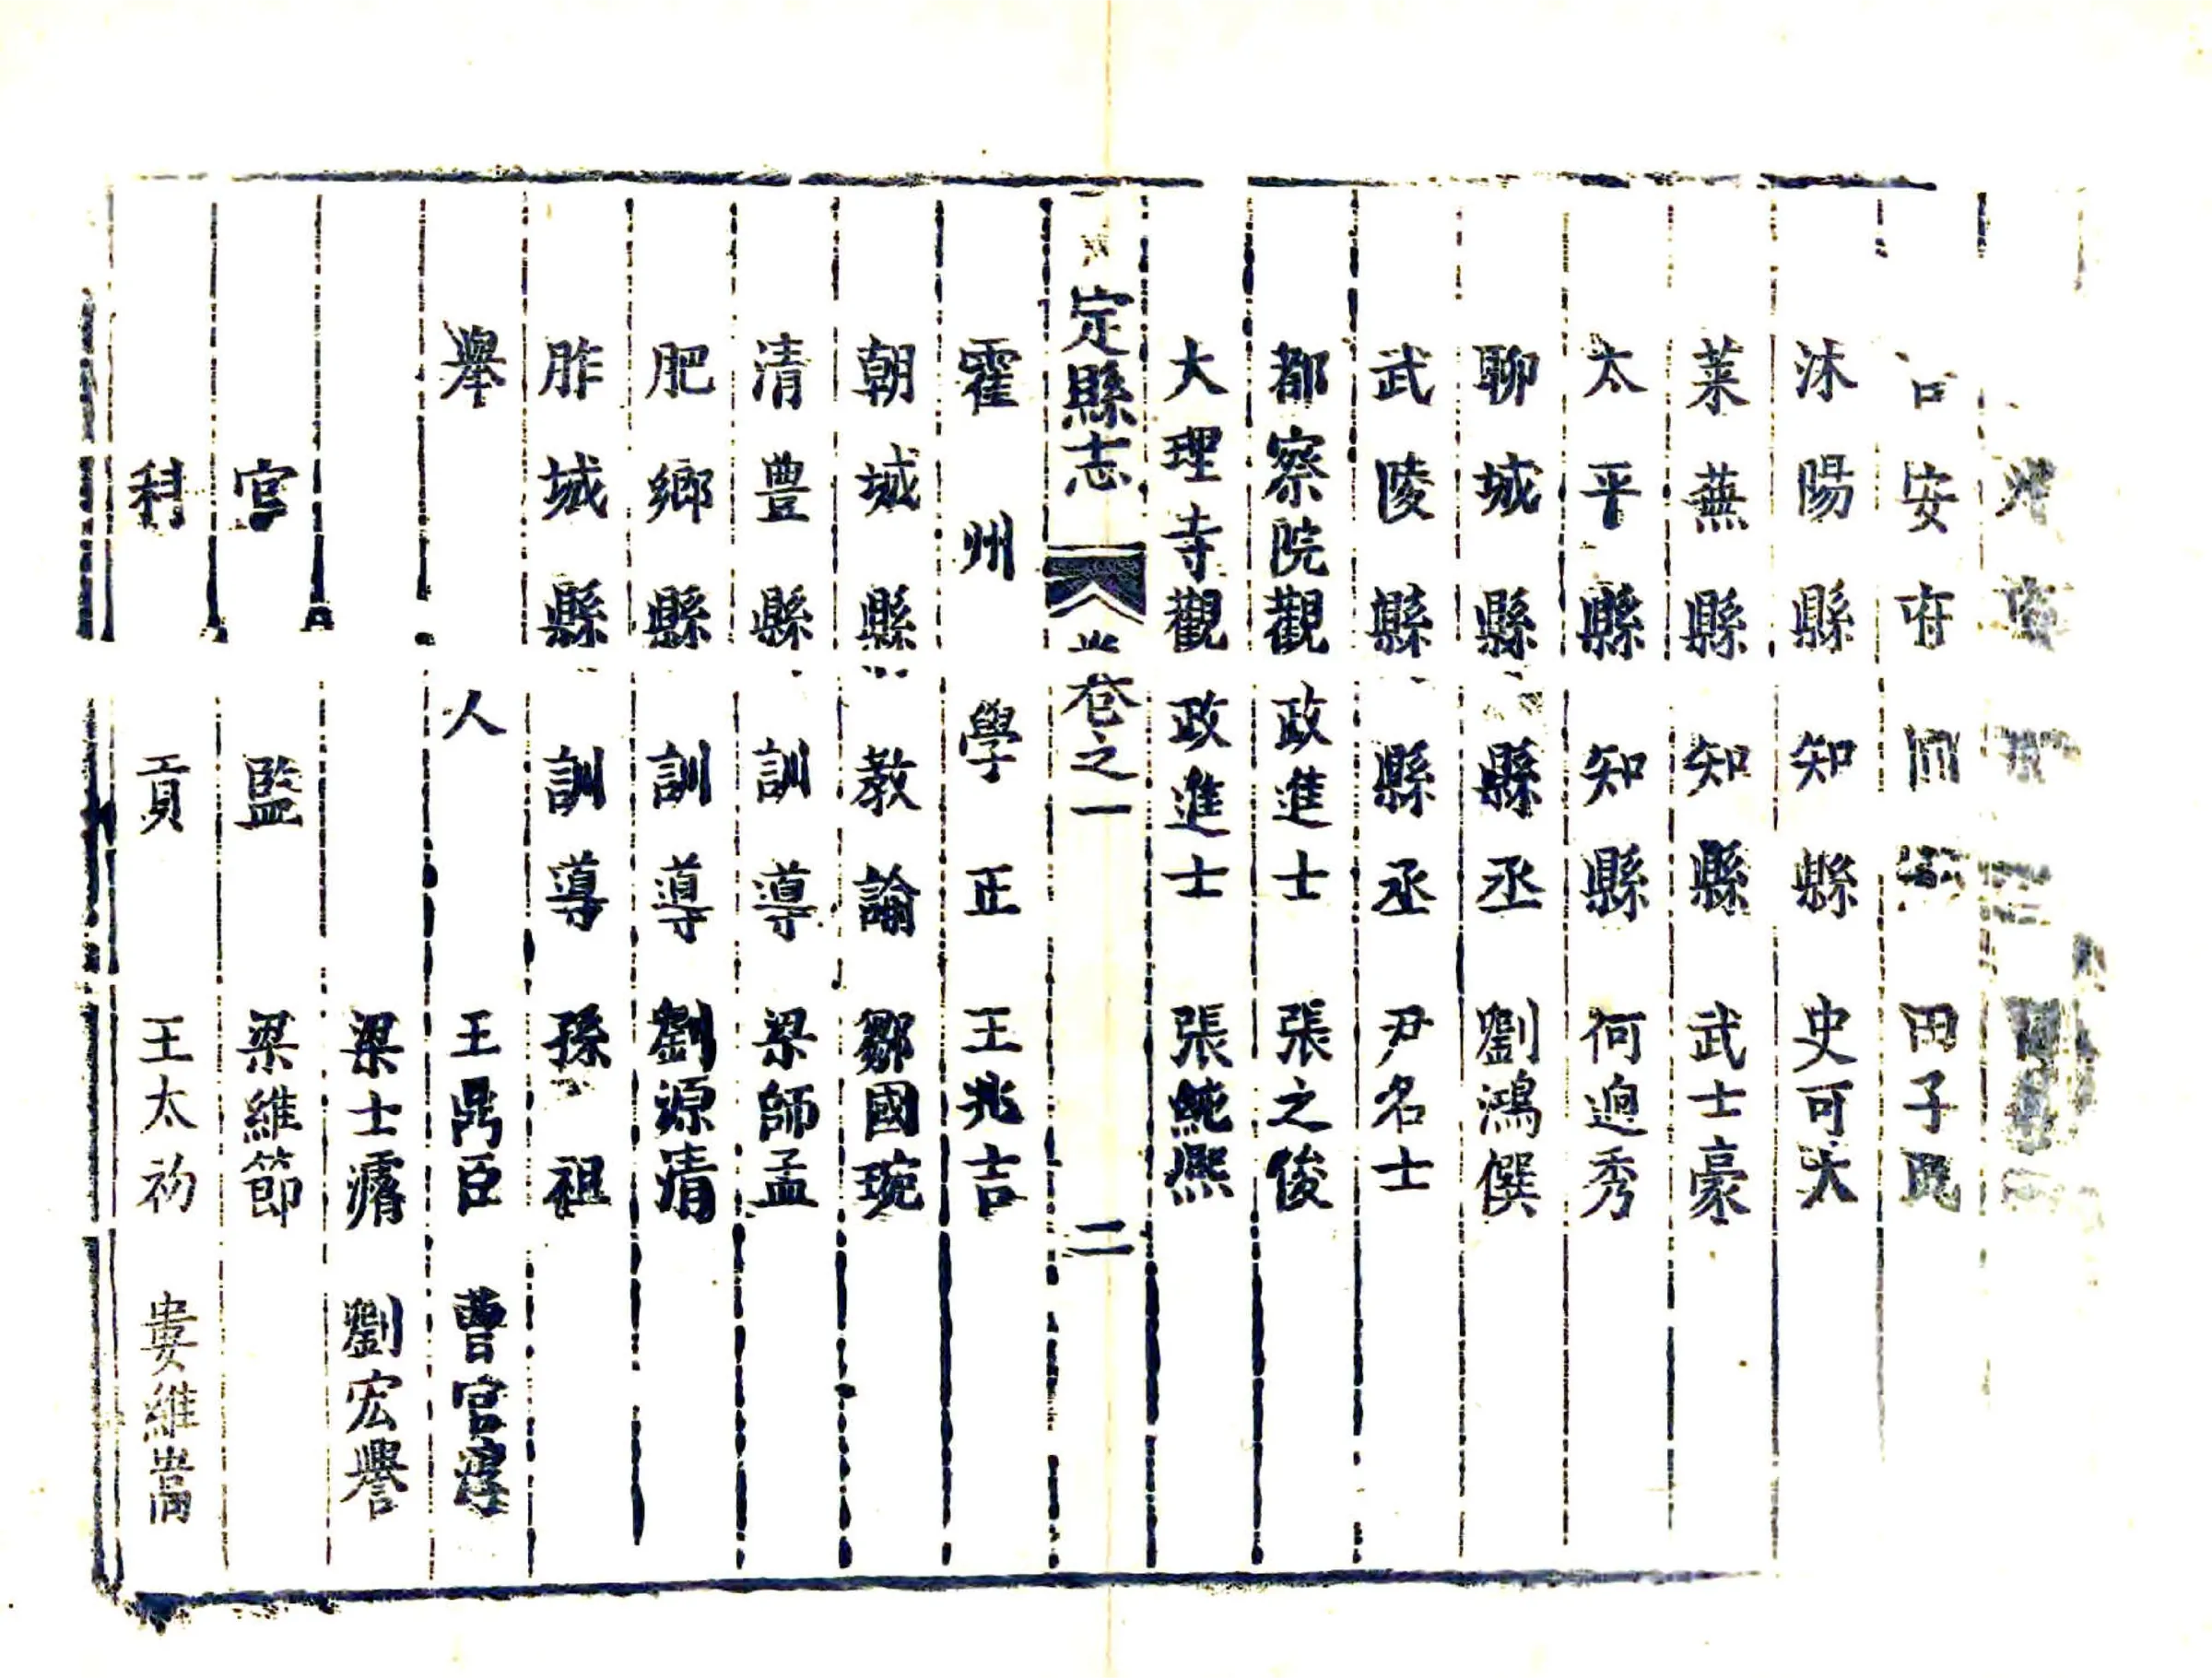 安府同知 田子
沭陽縣知縣 史可大
萊蕪縣知縣 武士豪
太平縣知縣 何迥秀
聊城縣縣丞 劉鴻僎
武陵縣縣丞 尹名士
都察院觀政進士 張之俊
大理寺觀政進士 張純熙
定縣志 卷之一 二
霍州學正 王兆吉
朝城縣教諭 鄒國琬
清豊縣訓導 梁師孟
肥鄉縣訓導 劉源清
胙城縣訓導 孫祖
舉人 王鼎臣 曹官
梁士 劉宏譽
官監 梁維節
科貢 王太初 婁維嵩